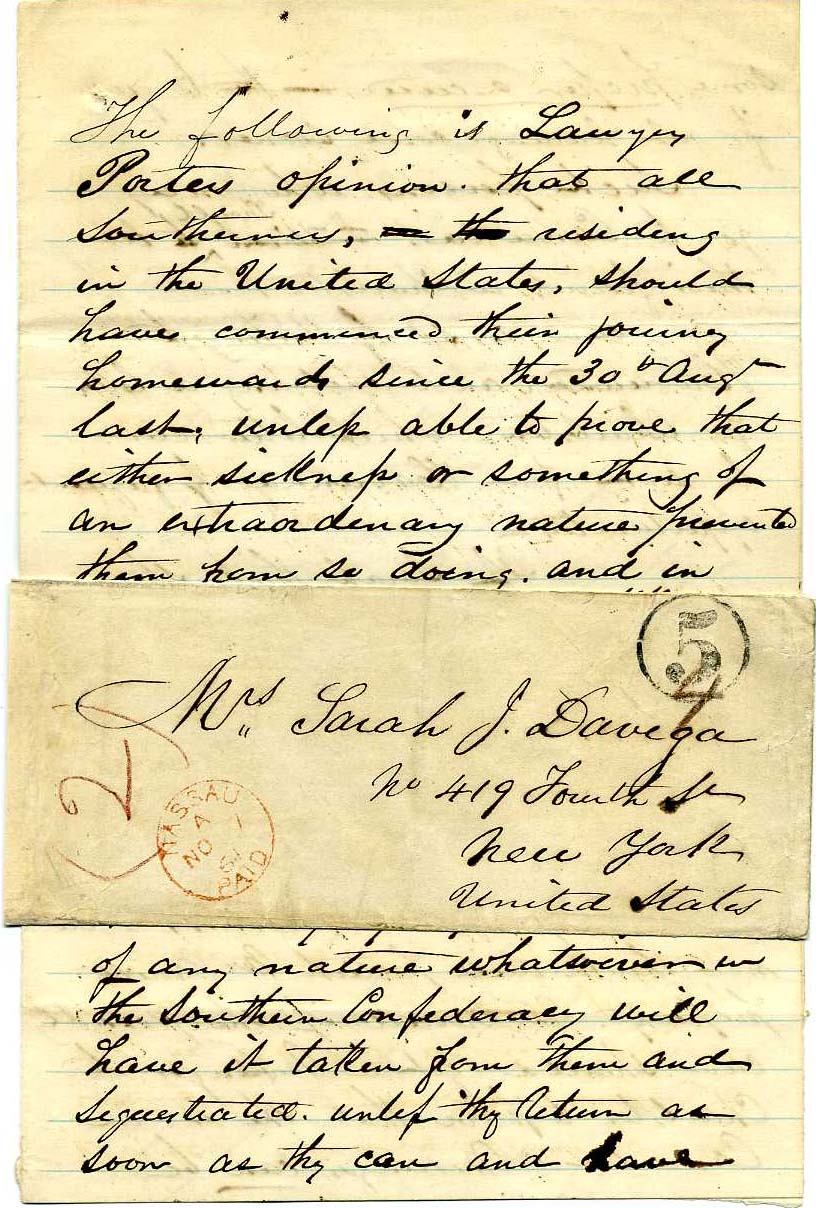 The following is Lawyer
Porters opinion. that all
Southerners, residing
in the United States, should
have commenced their journey
homewards since the 30th Augt
last, unless able to prove that
either sickness or something of
an extraordenary nature prevented
them from so doing. and in
5
4
Mrs Sarah J. Davega
No 419 Fourth St
New York
United States
2
NASSAU
A
NO 1
61
PAID
of any nature whatsoever in
the Southern Confederacy will
have it taken from them and
sequestrated. unless they return as
soon as they can and have